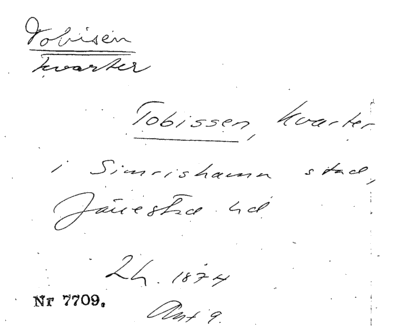 Tobisen
kvarter
Tobissen, kvarter
i Simrishamn stad,
Järrestad hd
Lh. 1874
Nr 7709.
Akt 9.